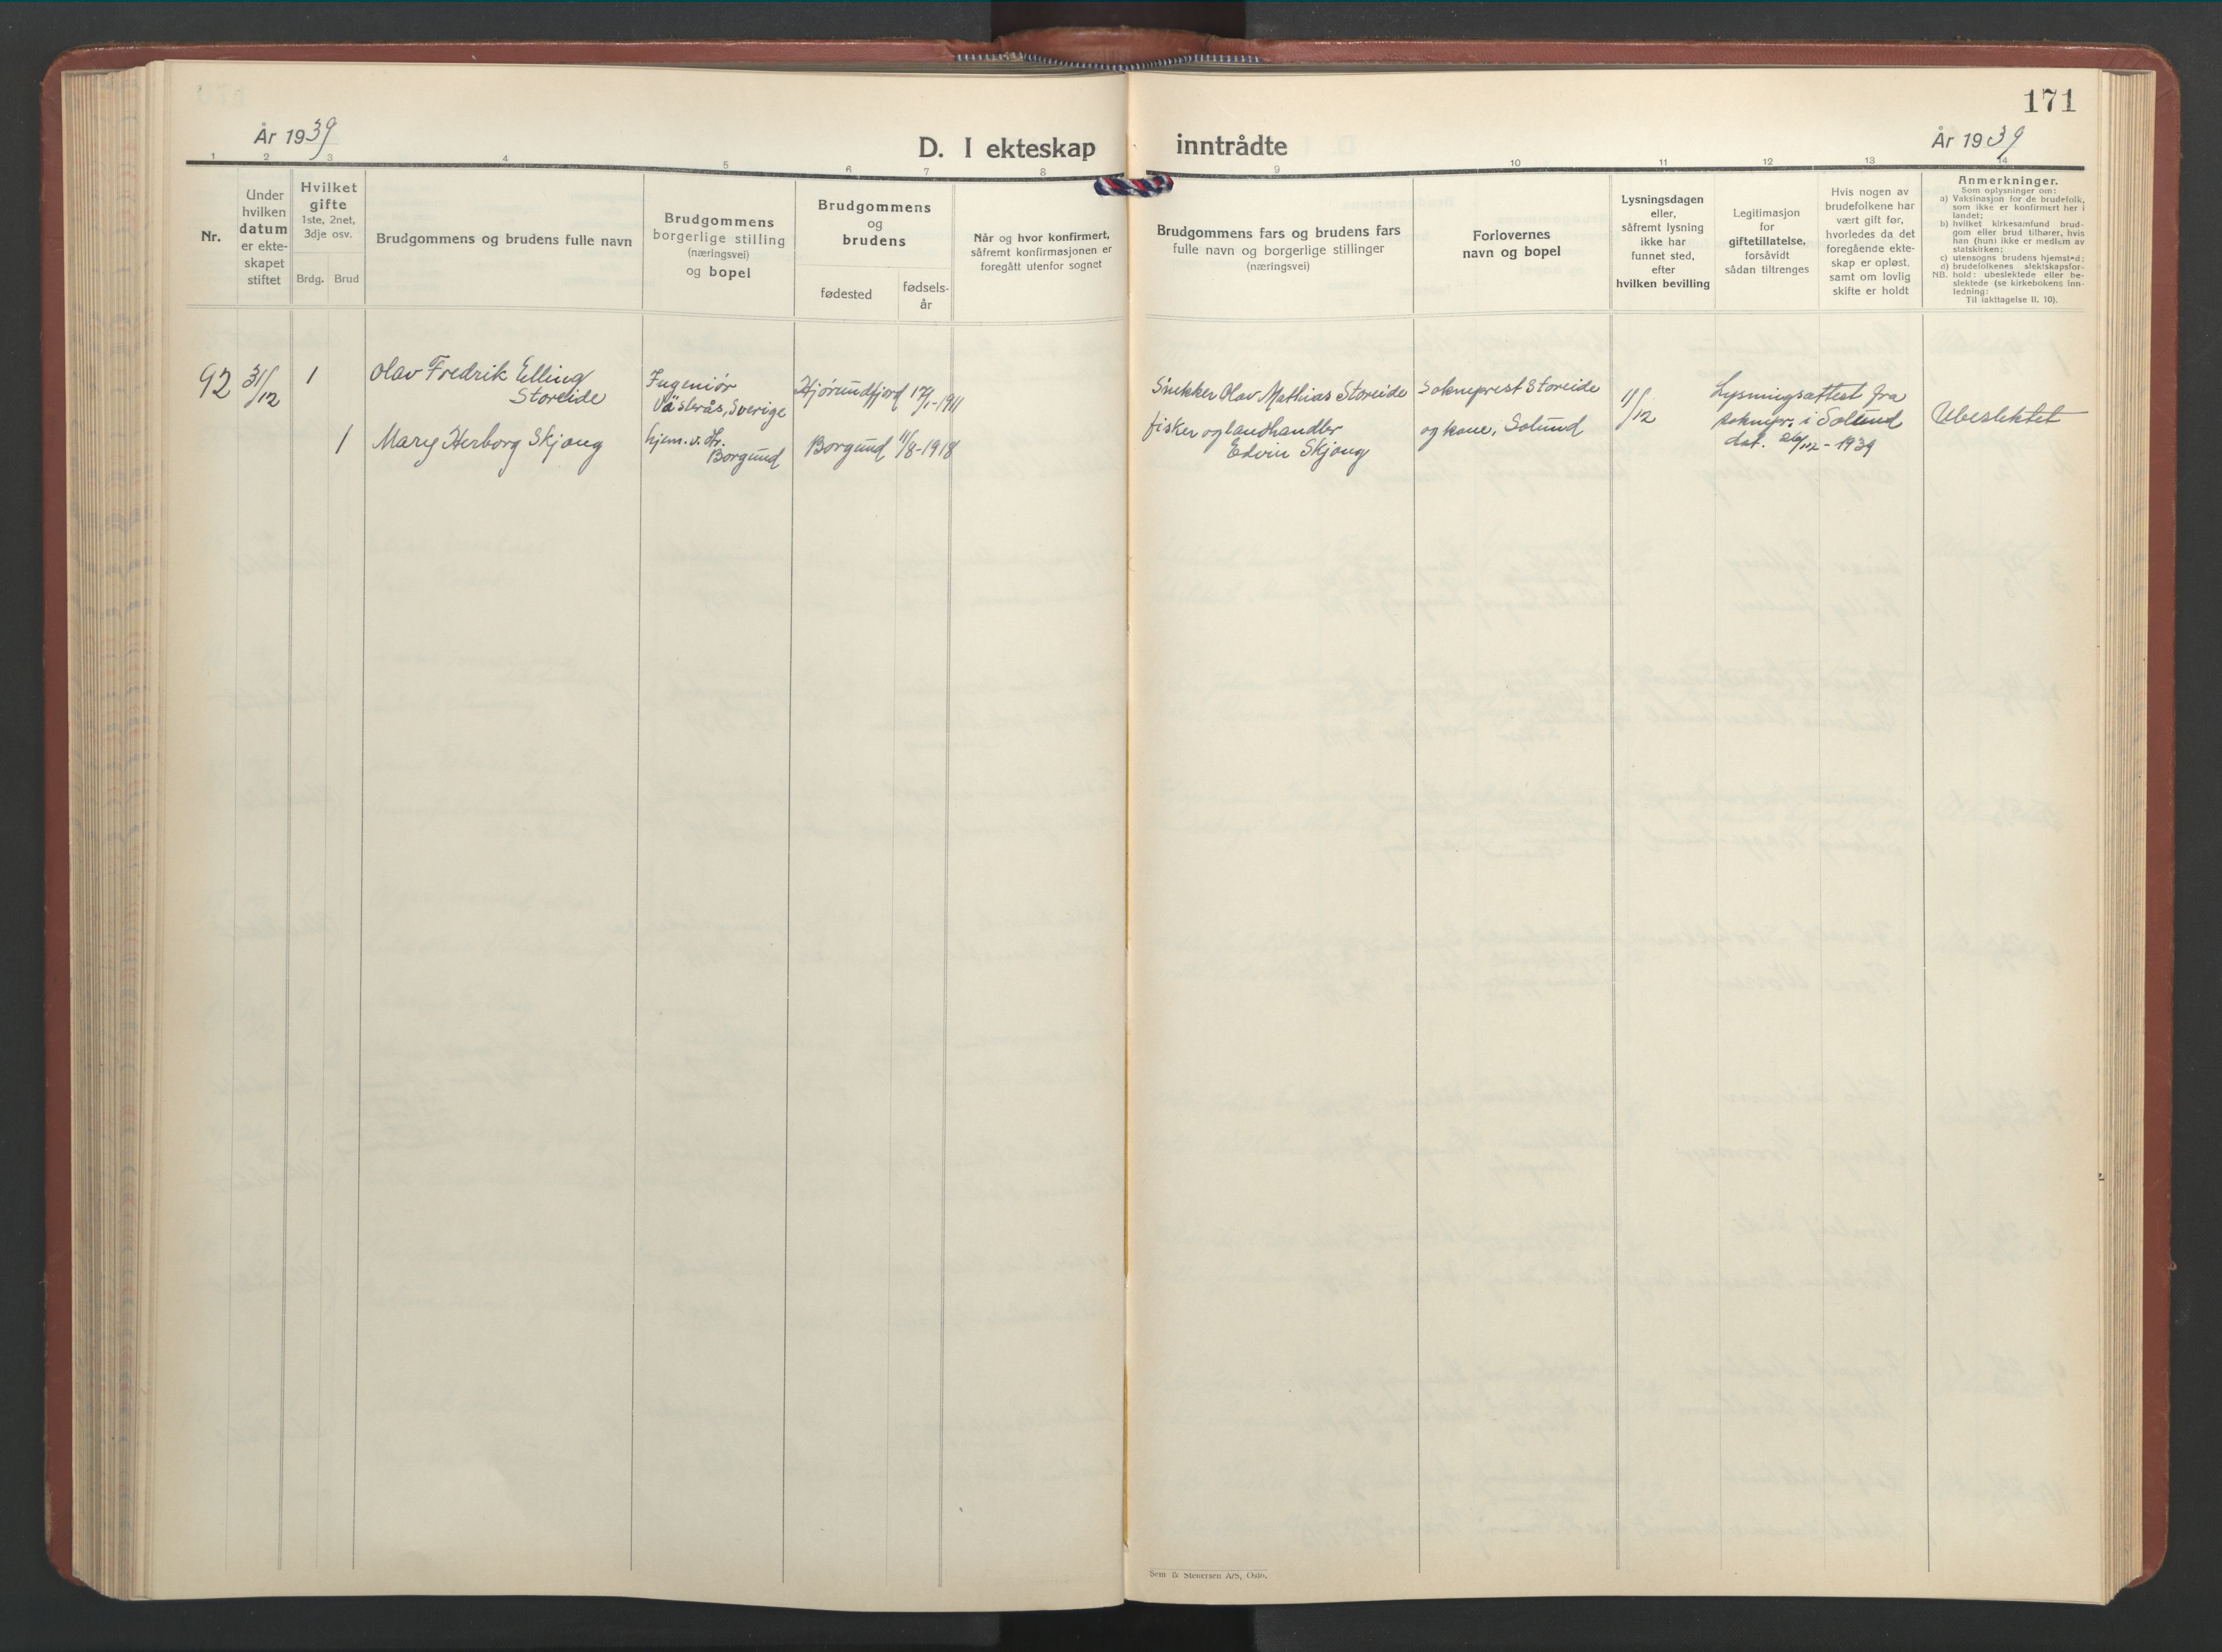 171
År 1939
D. I ekteskap inntrådte
År 1939
1 2 3 4 5 6 7 8 9 10 11 12 13 14
Nr.
Under
hvilken
datum
er ekte-
skapet
stiftet
Hvilket
gifte
1ste, 2net,
3dje osv.
Brdg. Brud
Brudgommens og brudens fulle navn
Brudgommens
borgerlige stilling
(næringsvei)
og bopel
Brudgommens
og
brudens
fødested
fødsels-
år
Når og hvor konfirmert,
såfremt konfirmasjonen er
foregått utenfor sognet
Brudgommens fars og brudens fars
fulle navn og borgerlige stillinger
(næringsvei)
Forlovernes
navn og bopel
Lysningsdagen
eller,
såfremt lysning
ikke har
funnet sted,
efter
hvilken bevilling
Legitimasjon
for
giftetillatelse,
forsåvidt
sådan tiltrenges
Hvis nogen av
brudefolkene har
vært gift før,
hvorledes da det
foregående ekte-
skap er opløst,
samt om lovlig
skifte er holdt
Anmerkninger.
Som oplysninger om:
a) Vaksinasjon for de brudefolk,
som ikke er konfirmert her i
landet;
b) hvilket kirkesamfund brud-
gom eller brud tilhører, hvis
han (hun) ikke er medlem av
statskirken;
c) utensogns brudens hjemsted;
d) brudefolkenes slektskapsfor-
NB. hold: ubeslektede eller be-
slektede (se kirkebokens inn-
ledning:
Til iakttagelse II. 10).
92 31/12 1
Olav Fredrik Elling
Storeide
Ingeniør
Västerås, Sverige
Hjørundfjord 17/1-1911
1 Mary Herborg Skjong
hjem. v. Hr.
Borgund
Borgund 11/8-1918
Snekker Olav Mathias Storeide
fisker og landhandler
Edvin Skjong
Sokneprest Storeide
og kone, Solund
11/12
Lysningsattest fra
soknepr. i Solund
dat. 26/12-1939
Ubeslektet
Sem & Stenersen A/S, Oslo.